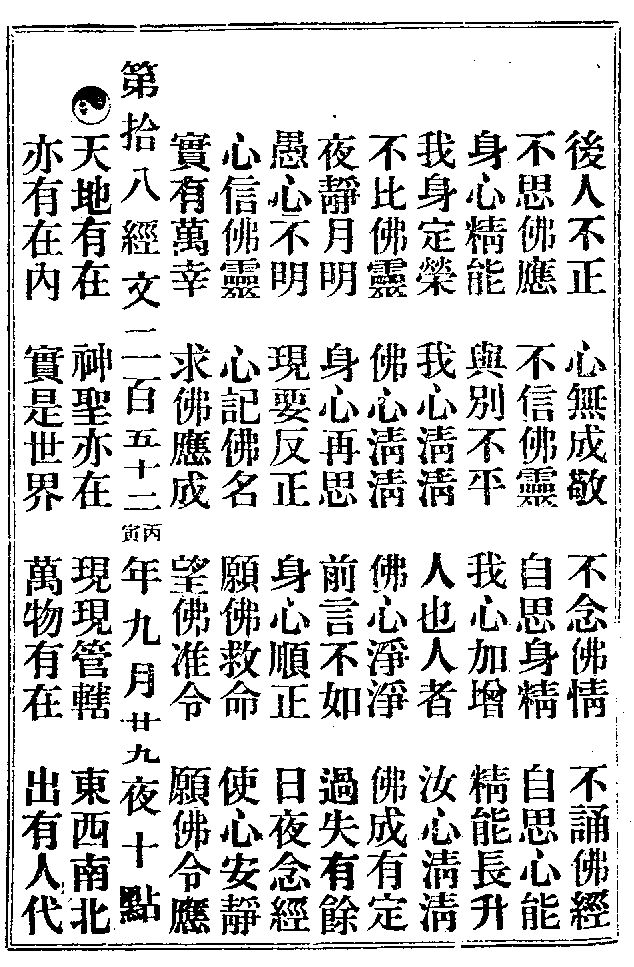 後人不正 心無成敬 不念佛情 不誦佛經
不思佛應 不信佛靈 自思身精 自思心能
身心精能 與別不平 我心加增 精能長升
我身定榮 我心清清 人也人者 汝心清清
不比佛靈 佛心清清 佛心淨淨 佛成有定
夜靜月明 身心再思 前言不如 過失有餘
愚心不明 現要反正 身心順正 日夜念經
心信佛靈 心記佛名 願佛救命 使心安靜
實有萬幸 求佛應成 望佛准令 願佛令應
第拾八經文二百五十二丙寅年九月廿九夜十點
天地有在 神聖亦在 現現管轄 東西南北
亦有在內 實是世界 萬物有在 出有人代